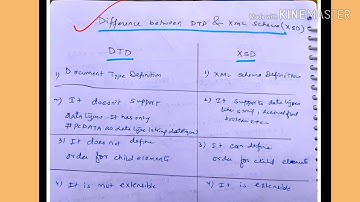 Made with KINEMASTER
Difference between DTD & XML Schema (XSD)
DTD
XSD
1) Document Type Definition
1) XML Schema Definition
2) It doesn't support
data types. It has only
#PCDATA as data type
2) It supports data types
boolean etc.
3) It does not define
order for child elements
3) It can define
order for child elements
4) It is not extensible
4) It is extensible